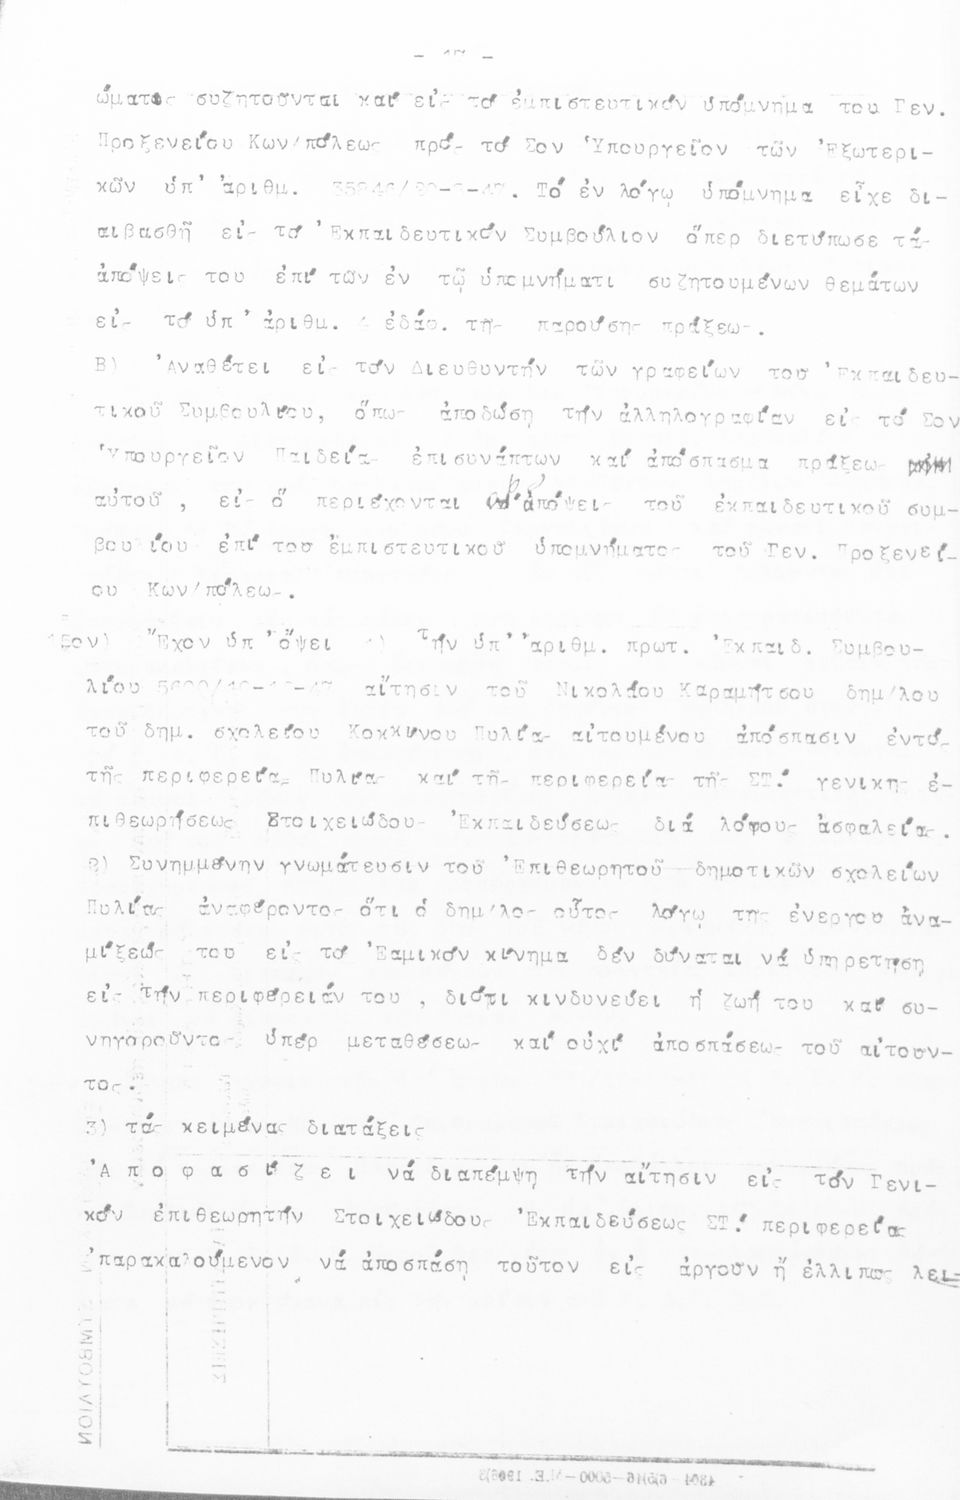 ώματος συζητοῦνται καί εἰς τό ἐμπιστευτικόν ὑπόμνημα του Γεν.
Προξενείου Κων/πόλεως πρός τό Σον Ὑπουργεῖον τῶν Ἐξωτερι-
κῶν ὑπ' ἀριθμ. Τό ἐν λόγῳ ὑπόμνημα εἶχε δι-
αιβασθῆ εἰς τό Ἐκπαιδευτικόν Συμβούλιον ὅπερ διετύπωσε τάς
ἀπόψεις του ἐπί τῶν ἐν τῷ ὑπομνήματι συζητουμένων θεμάτων
εἰς τό ὑπ' ἀριθμ. ἐδάφ. τῆς παρούσης πράξεως.
Β) Ἀναθέτει εἰς τόν Διευθυντήν τῶν γραφείων τοῦ Ἐκπαιδευ-
τικοῦ Συμβουλίου, ὅπως ἀποδώση τήν ἀλληλογραφίαν εἰς τό Σον
Ὑπουργεῖον Παιδείας ἐπισυνάπτων καί ἀπόσπασμα πράξεως
αὐτοῦ , εἰς ὅ περιέχονται ἀπόψεις τοῦ ἐκπαιδευτικοῦ συμ-
βουλίου ἐπί τοῦ ἐμπιστευτικοῦ ὑπομνήματος τοῦ Γεν. Προξενεί-
ου Κων/πόλεως.
15ον) Ἔχον ὑπ' ὄψει 1) Τήν ὑπ' ἀριθμ. πρωτ. Ἐκπαιδ. Συμβου-
λίου αἴτησιν τοῦ Νικολάου Καραμήτσου δημ/λου
τοῦ δημ. σχολείου Κοκκίνου Πυλίας αἰτουμένου ἀπόσπασιν ἐντός
τῆς περιφερείας Πυλίας καί τῆς περιφερείας τῆς ΣΤ! γενικης ἐ-
πιθεωρήσεως Στοιχειώδους Ἐκπαιδεύσεως διά λόγους ἀσφαλείας.
2) Συνημμένην γνωμάτευσιν τοῦ Ἐπιθεωρητοῦ δημοτικῶν σχολείων
Πυλίας ἀναφέροντος ὅτι ὁ δημ/λος οὗτος λόγῳ της ἐνεργου ἀνα-
μίξεώς του εἰς τό Ἐαμικόν κίνημα δέν δύναται νά ὑπηρετήση
εἰς τήν περιφέρειάν του , διότι κινδυνεύει ἡ ζωή του καί συ-
νηγοροῦντος ὑπέρ μεταθέσεως καί οὐχί ἀποσπάσεως τοῦ αἰτοῦν-
τος.
3) τάς κειμένας διατάξεις
Ἀ π ο φ α σ ί ζ ε ι νά διαπέμψη τήν αἴτησιν εἰς τόν Γενι-
κόν ἐπιθεωρητήν Στοιχειώδους Ἐκπαιδεύσεως ΣΤ! περιφερείας
παρακαλούμενον νά ἀποσπάση τοῦτον εἰς ἀργοῦν ἤ ἐλλιπῶς λει-
ΣΥΜΒΟΥΛΙΟΝ